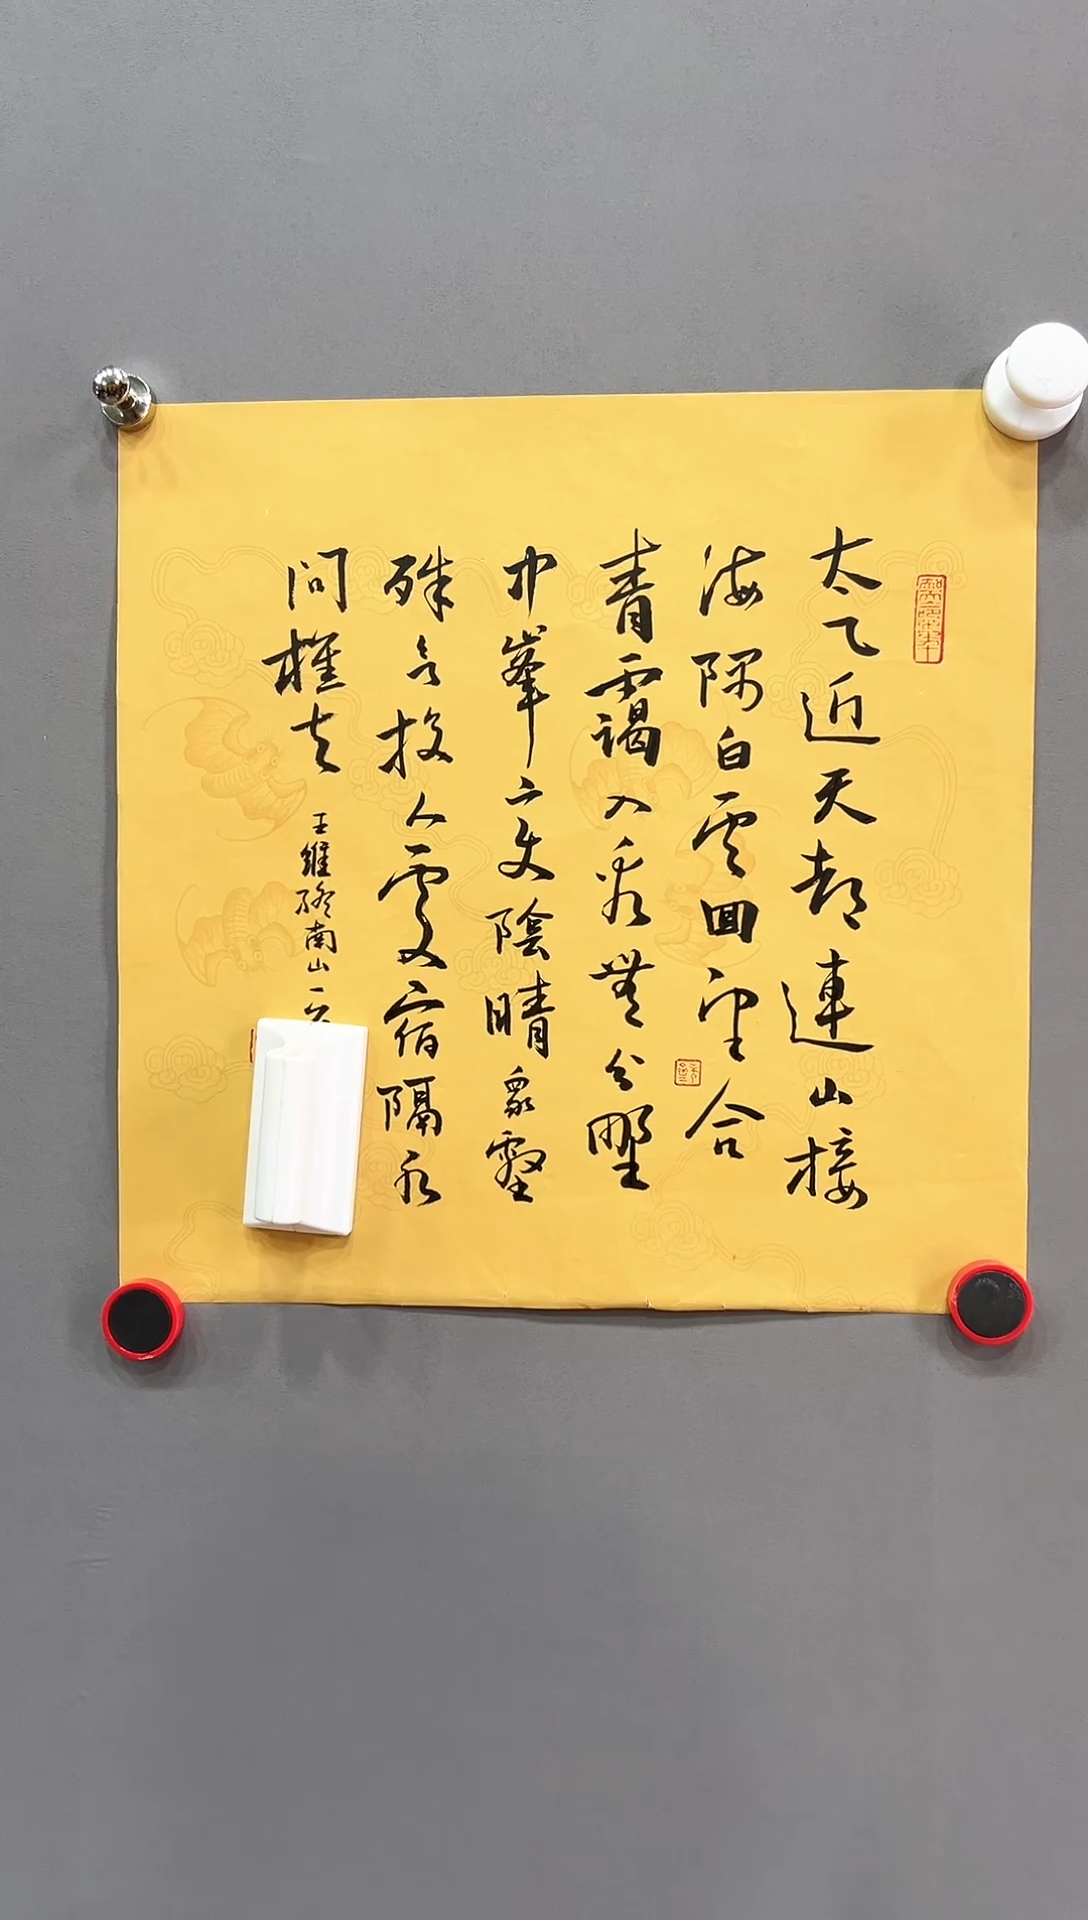 太乙近天都連山接
海隅白雲囬望合
青靄入看無分野
中峯變陰晴眾壑
殊欲投人處宿隔水
問樵夫
王維終南山一